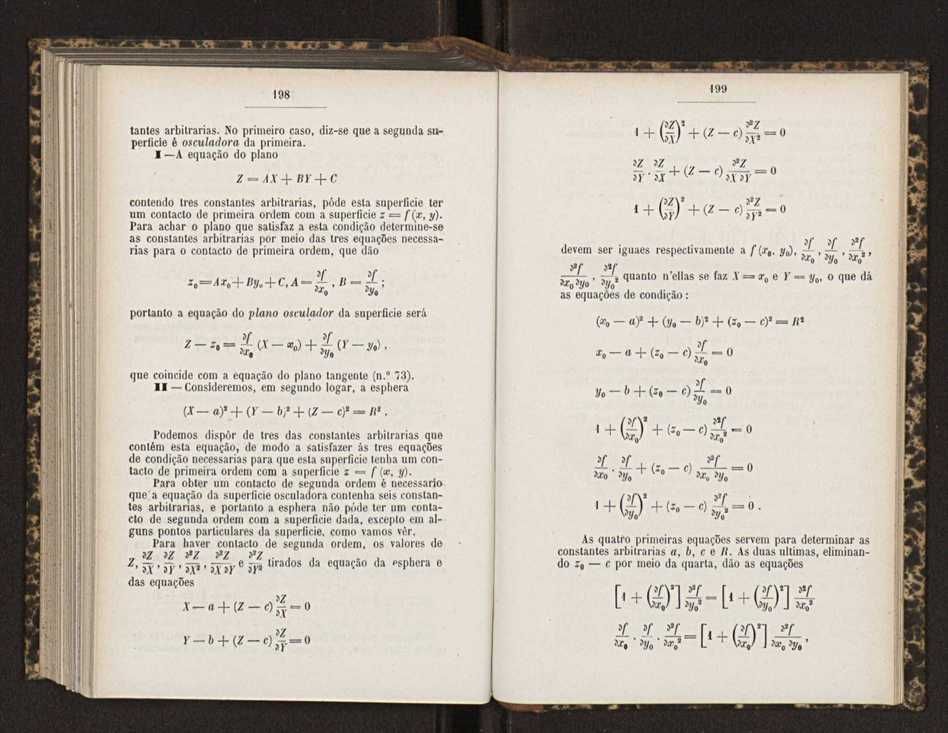 198
tantes arbitrarias. No primeiro caso, diz-se que a segunda su-
perficie é osculadora da primeira.
I — A equação do plano
Z = AX + BY + C
contendo tres constantes arbitrarias, póde esta superficie ter
um contacto de primeira ordem com a superficie z = f (x, y).
Para achar o plano que satisfaz a esta condição determine-se
as constantes arbitrarias por meio das tres equações necessa-
rias para o contacto de primeira ordem, que dão
z₀ = Ax₀ + By₀ + C, A = ∂f/∂x₀ , B = ∂f/∂y₀ ;
portanto a equação do plano osculador da superficie será
Z — z₀ = ∂f/∂x₀ (X — x₀) + ∂f/∂y₀ (Y — y₀) .
que coincide com a equação do plano tangente (n.º 73).
II — Consideremos, em segundo logar, a esphera
(X — a)² + (Y — b)² + (Z — c)² = R² .
Podemos dispôr de tres das constantes arbitrarias que
contêm esta equação, de modo a satisfazer ás tres equações
de condição necessarias para que esta superficie tenha um con-
tacto de primeira ordem com a superficie z = f (x, y).
Para obter um contacto de segunda ordem é necessario
que a equação da superficie osculadora contenha seis constan-
tes arbitrarias, e portanto a esphera não póde ter um conta-
cto de segunda ordem com a superficie dada, excepto em al-
guns pontos particulares da superficie, como vamos vêr.
Para haver contacto de segunda ordem, os valores de
Z, ∂Z/∂X , ∂Z/∂Y , ∂²Z/∂X² , ∂²Z/∂X ∂Y e ∂²Z/∂Y² tirados da equação da esphera e
das equações
X — a + (Z — c) ∂Z/∂X = 0
Y — b + (Z — c) ∂Z/∂Y = 0
199
1 + (∂Z/∂X)² + (Z — c) ∂²Z/∂X² = 0
∂Z/∂Y . ∂Z/∂X + (Z — c) ∂²Z/∂X ∂Y = 0
1 + (∂Z/∂Y)² + (Z — c) ∂²Z/∂Y² = 0
devem ser iguaes respectivamente a f (x₀, y₀), ∂f/∂x₀ , ∂f/∂y₀ , ∂²f/∂x₀² ,
∂²f/∂x₀∂y₀ , ∂²f/∂y₀² quanto n'ellas se faz X = x₀ e Y = y₀, o que dá
as equações de condição :
(x₀ — a)² + (y₀ — b)² + (z₀ — c)² = R²
x₀ — a + (z₀ — c) ∂f/∂x₀ = 0
y₀ — b + (z₀ — c) ∂f/∂y₀ = 0
1 + (∂f/∂x₀)² + (z₀ — c) ∂²f/∂x₀² = 0
∂f/∂x₀ . ∂f/∂y₀ + (z₀ — c) ∂²f/∂x₀ ∂y₀ = 0
1 + (∂f/∂y₀)² + (z₀ — c) ∂²f/∂y₀² = 0 .
As quatro primeiras equações servem para determinar as
constantes arbitrarias a, b, c e R. As duas ultimas, eliminan-
do z₀ — c por meio da quarta, dão as equações
[1 + (∂f/∂x₀)²] ∂²f/∂y₀² = [1 + (∂f/∂y₀)²] ∂²f/∂x₀²
∂f/∂x₀ . ∂f/∂y₀ . ∂²f/∂x₀² = [1 + (∂f/∂x₀)²] ∂²f/∂x₀ ∂y₀ ,